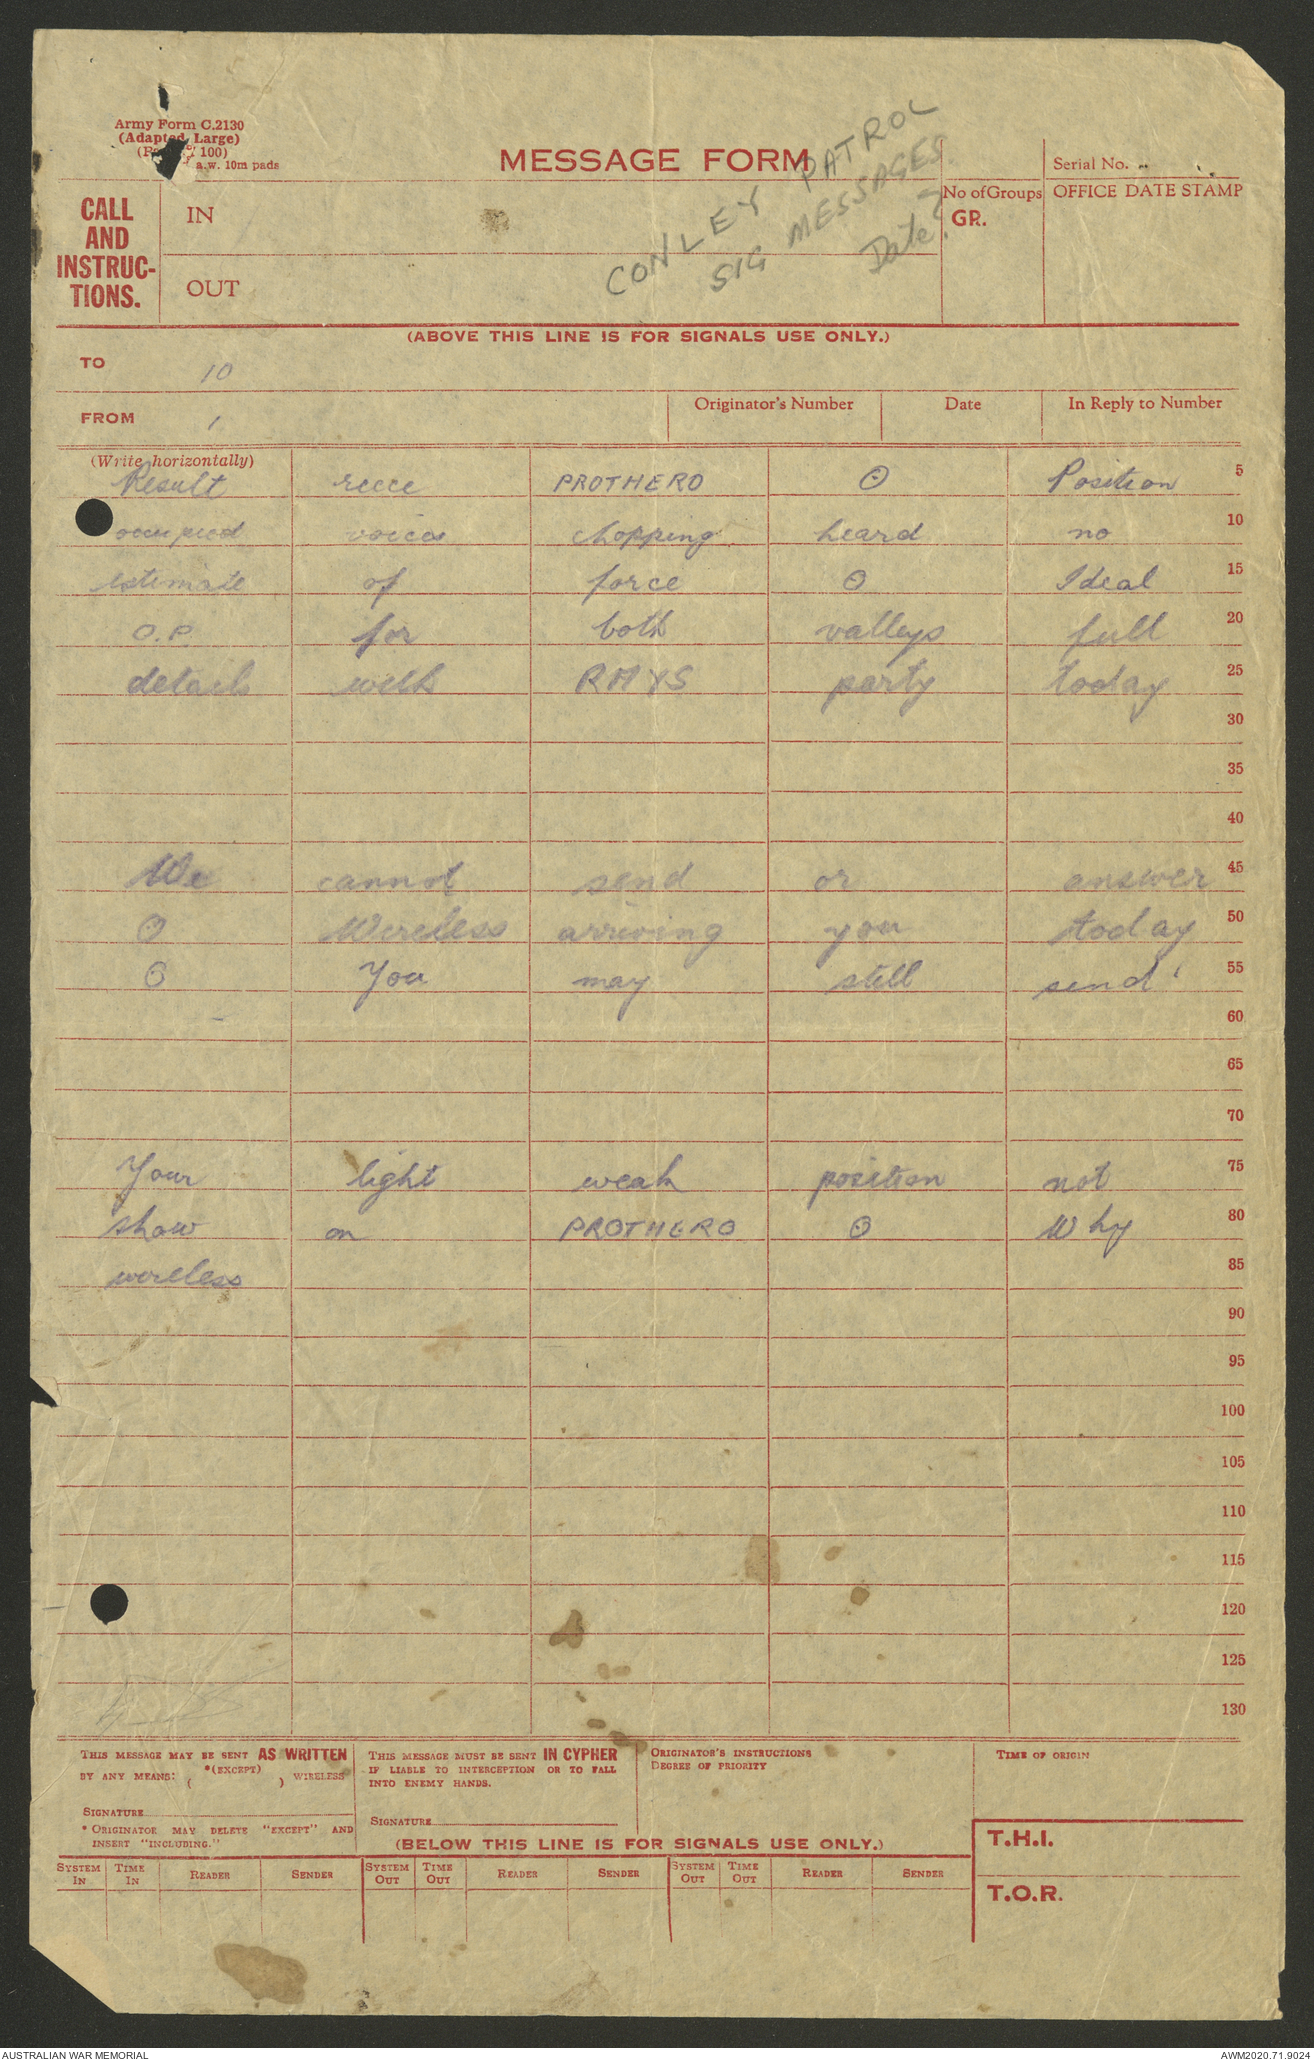 Army Form C.2130
(Adapted Large)
100)
a.w. 10m pads
MESSAGE FORM
CONLEY PATROL
SIG MESSAGES.
Date?
Serial No.
No of Groups
GR.
OFFICE DATE STAMP
CALL
AND
INSTRUC-
TIONS.
IN
OUT
(ABOVE THIS LINE IS FOR SIGNALS USE ONLY.)
TO 10
FROM 1
Originator's Number Date In Reply to Number
(Write horizontally)
Result recce PROTHERO ⊙ Position 5
occupied voices chopping heard no 10
estimate of force ⊙ Ideal 15
O.P. for both valleys full 20
details with RHYS party today 25
30
35
40
We cannot send or answer 45
⊙ Wireless arriving you today 50
⊙ You may still send 55
60
65
70
Your light weak position not 75
show on PROTHERO ⊙ Why 80
wireless 85
90
95
100
105
110
115
120
125
130
THIS MESSAGE MAY BE SENT AS WRITTEN
BY ANY MEANS: *(EXCEPT) ( ) WIRELESS
SIGNATURE
* ORIGINATOR MAY DELETE "EXCEPT" AND
INSERT "INCLUDING."
THIS MESSAGE MUST BE SENT IN CYPHER
IF LIABLE TO INTERCEPTION OR TO FALL
INTO ENEMY HANDS.
SIGNATURE
ORIGINATOR'S INSTRUCTIONS
DEGREE OF PRIORITY
TIME OF ORIGIN
(BELOW THIS LINE IS FOR SIGNALS USE ONLY.)
T.H.I.
T.O.R.
SYSTEM IN TIME IN READER SENDER SYSTEM OUT TIME OUT READER SENDER SYSTEM OUT TIME OUT READER SENDER
AUSTRALIAN WAR MEMORIAL AWM2020.71.9024